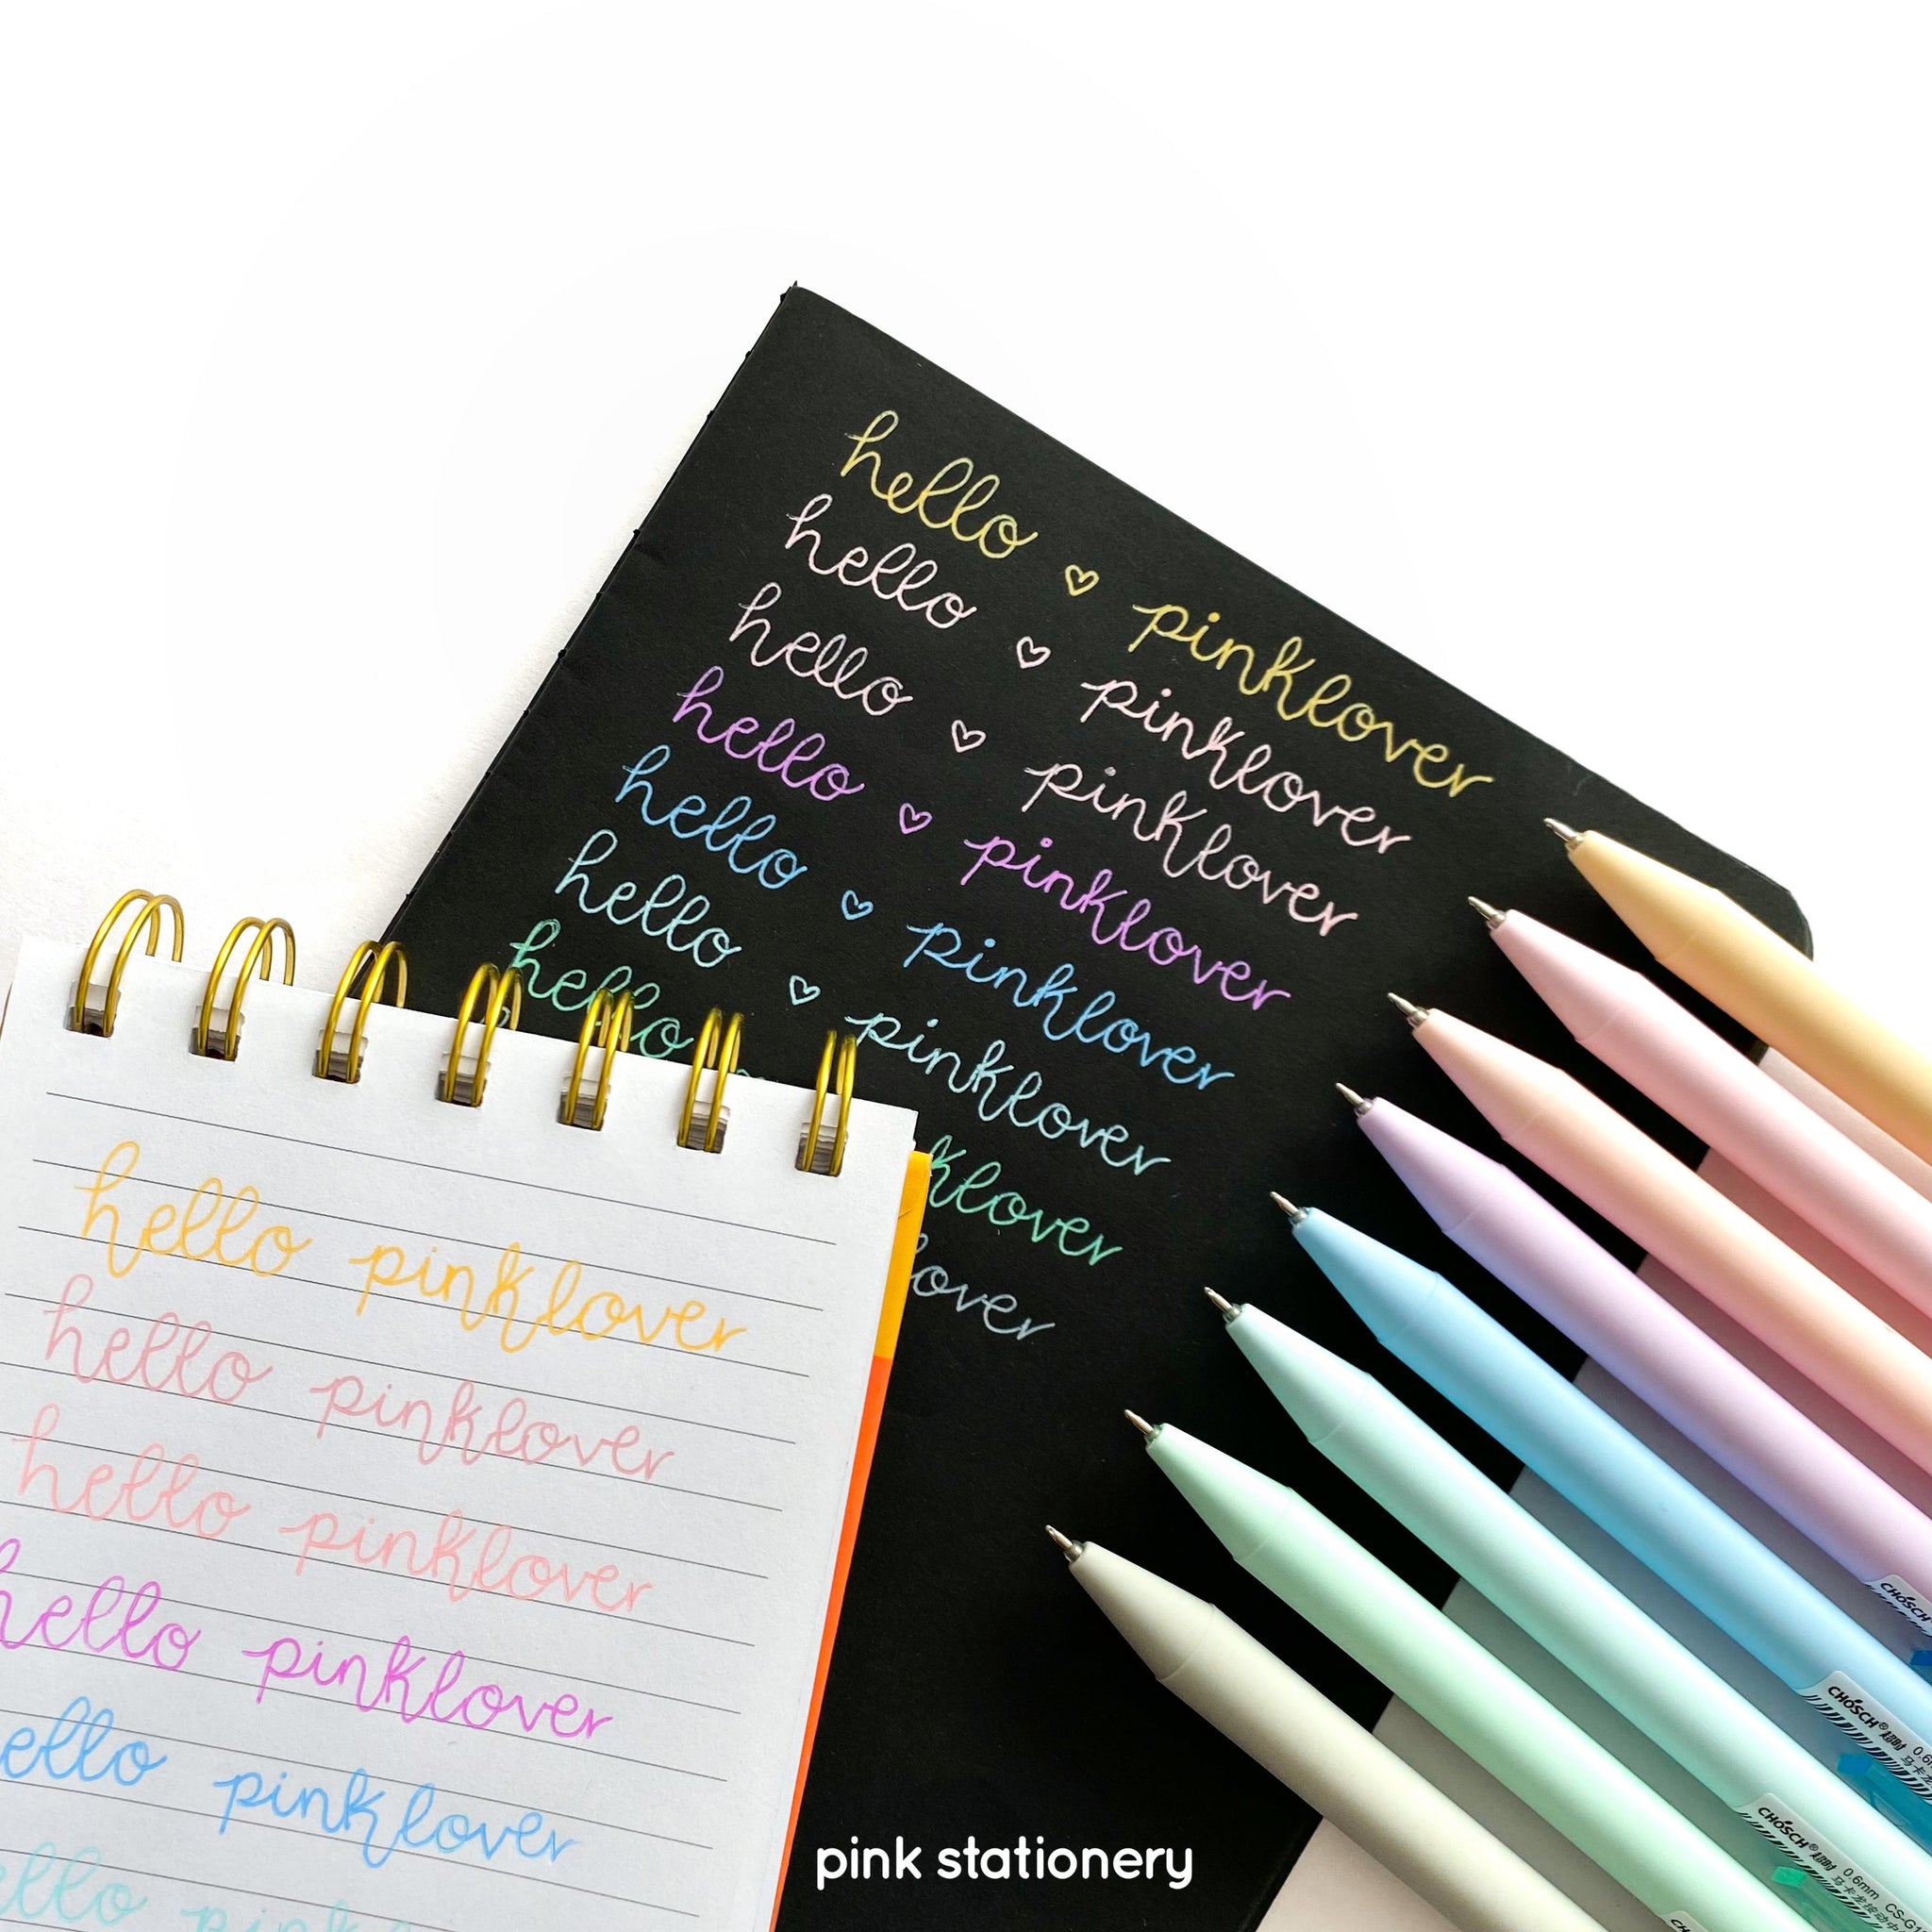 hello ♡ pinklover
hello ♡ pinklover
hello ♡ pinklover
hello ♡ pinklover
hello ♡ pinklover
hello ♡ pinklover
hello klover
over
hello pinklover
hello pinklover
hello pinklover
hello pinklover
ello pinklover
ello pink
CHOSCH
CHOSCH® 超时 0.6
CHOSCH® 超时 0.6mm CS-G
马卡龙按动中
pink stationery